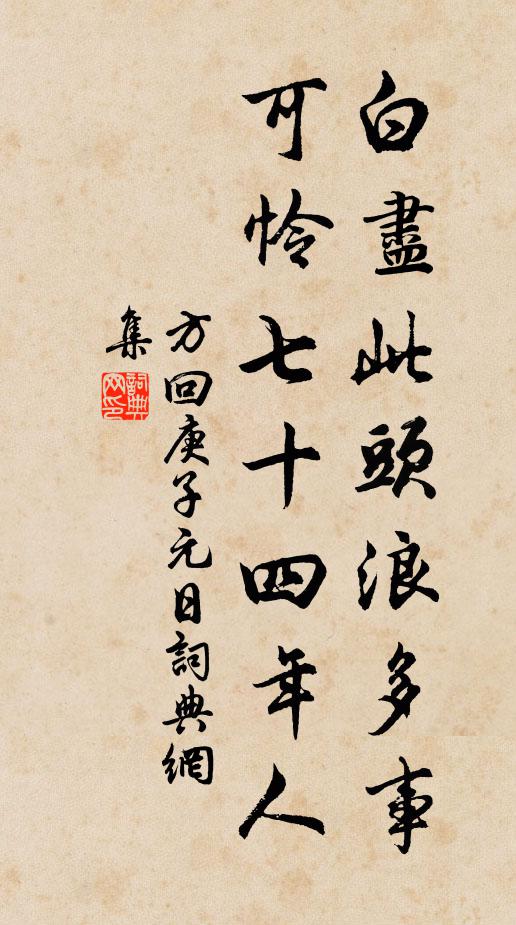 白盡此頭浪多事
可憐七十四年人
方回庚子元日詞典網
集
詞典
网印